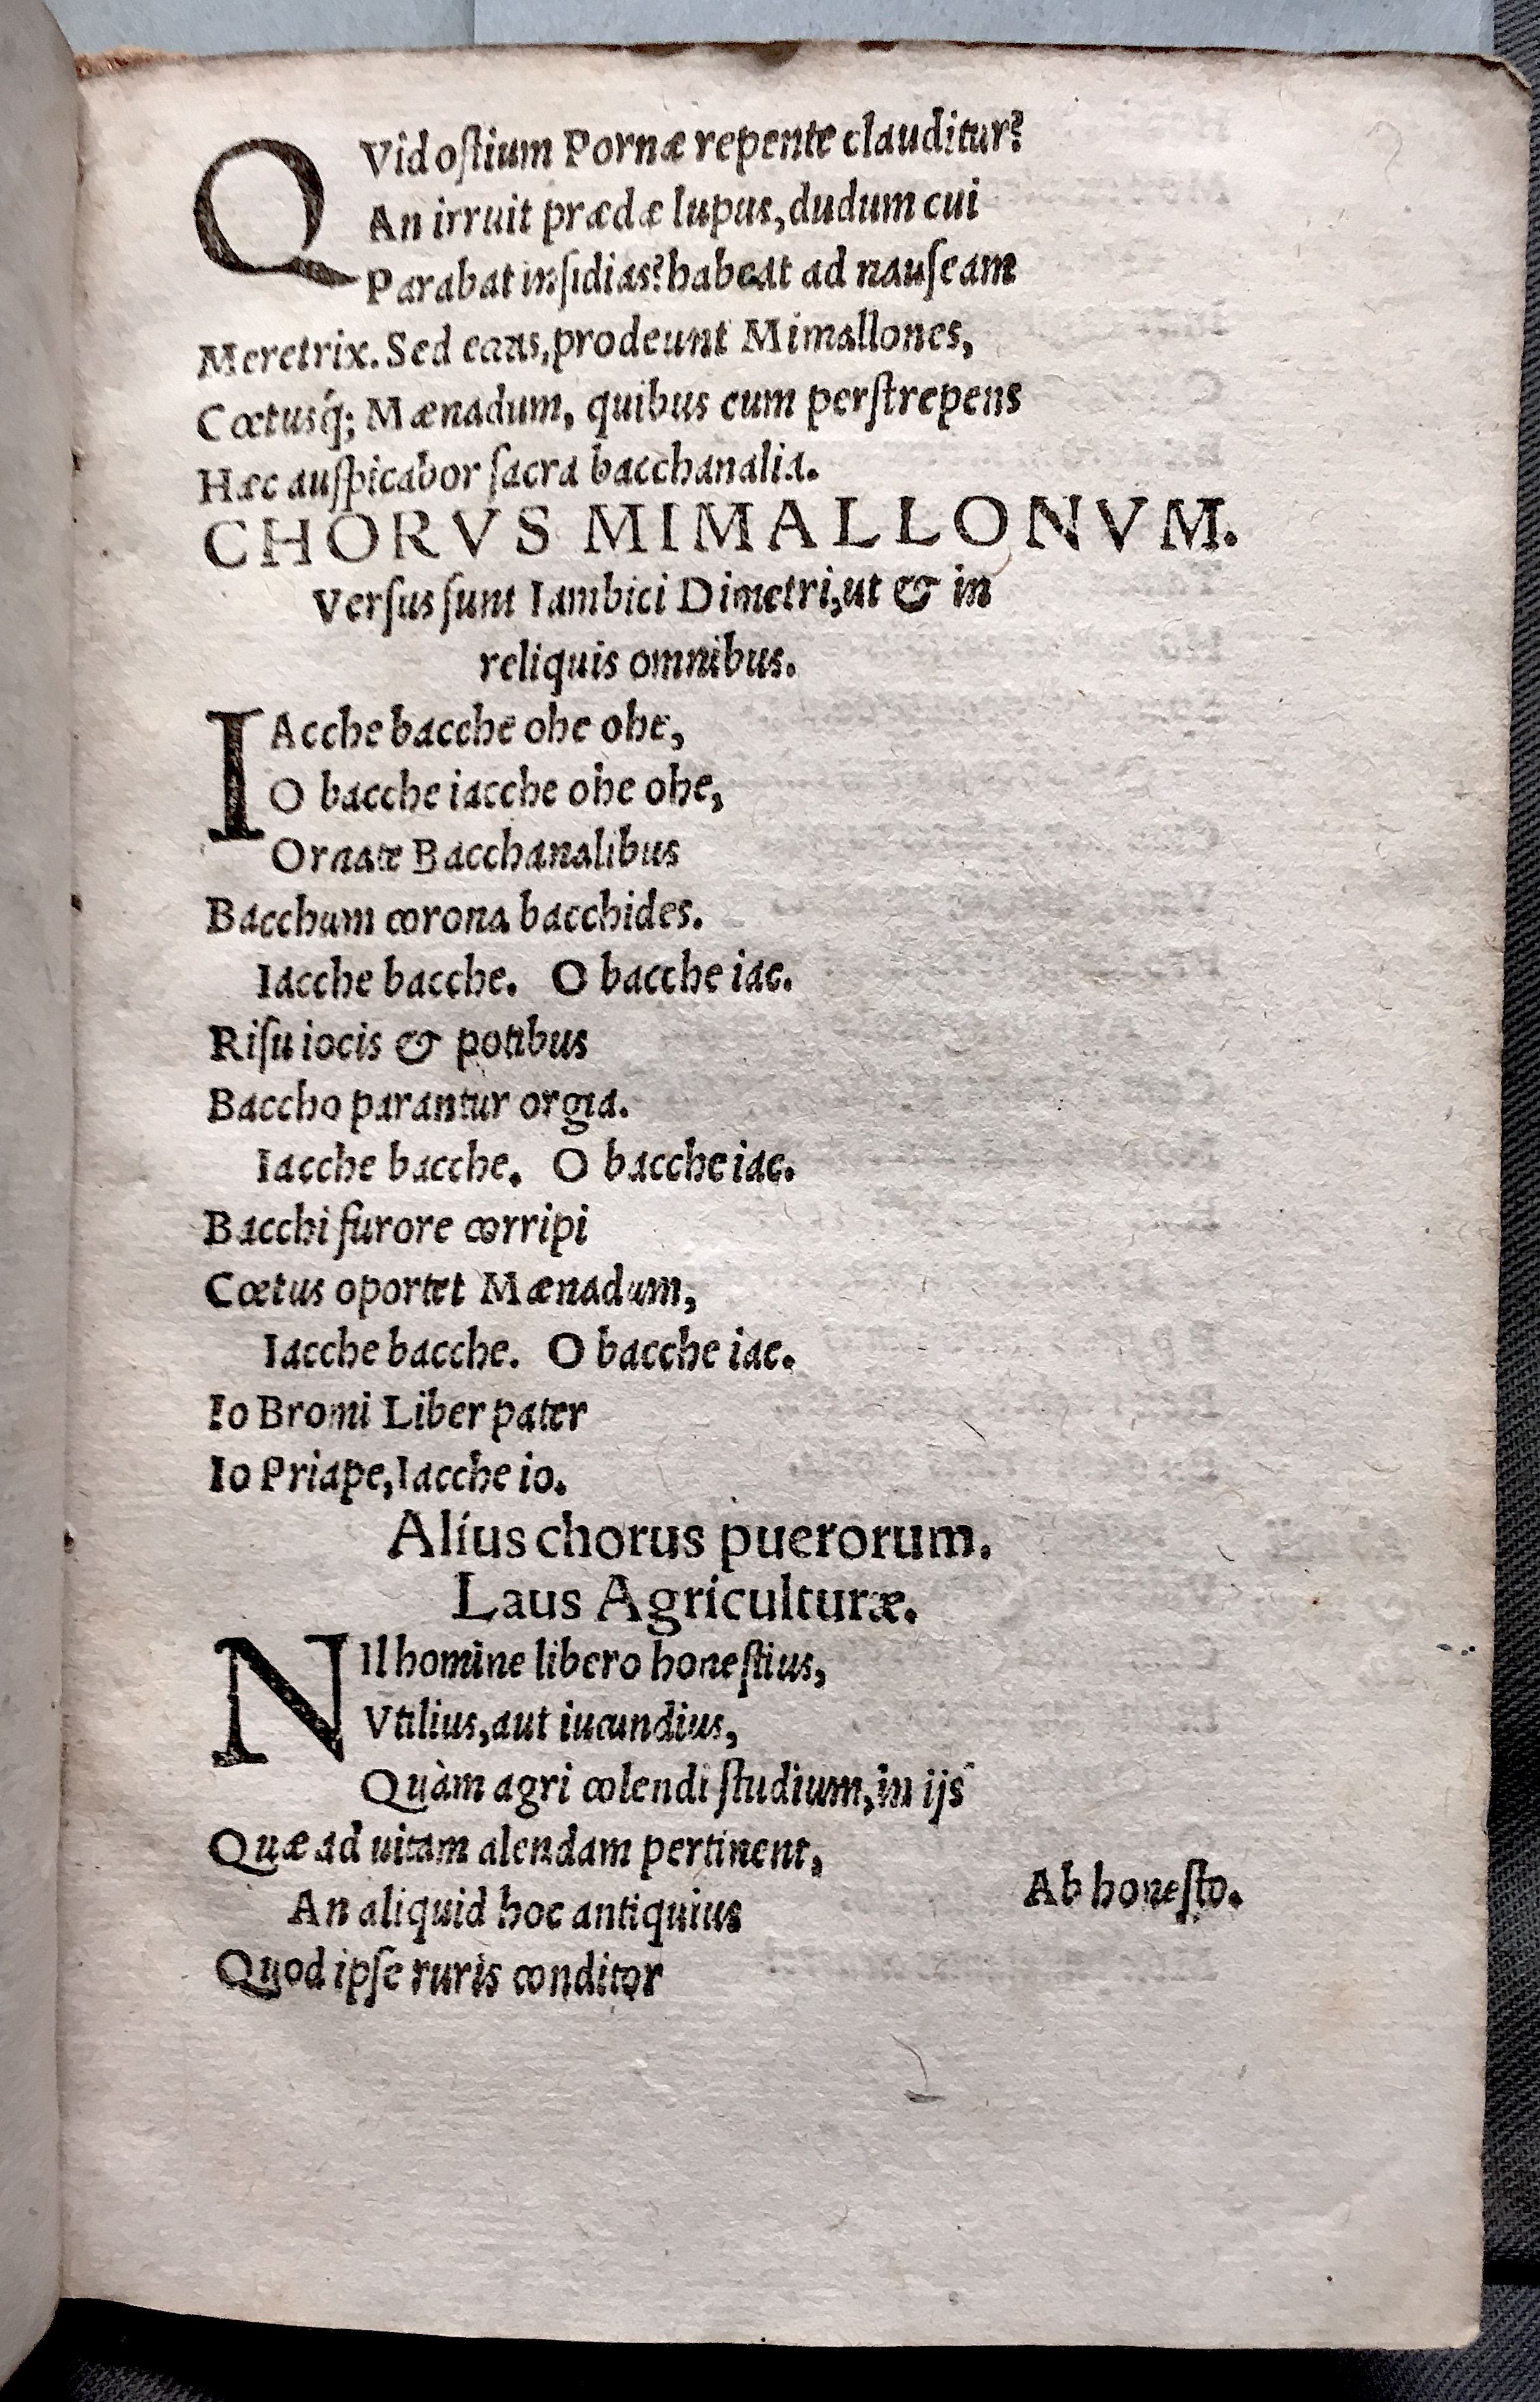 QVid ostium Pornæ repente clauditur?
An irruit prædæ lupus, dudum cui
Parabat insidias? habeat ad nauseam
Meretrix. Sed eccas, prodeunt Mimallones,
Cœtusq́; Mænadum, quibus cum perstrepens
Hæc auspicabor sacra bacchanalia.
CHORVS MIMALLONVM.
Versus sunt Iambici Dimetri, ut & in
reliquis omnibus.
IAcche bacche ohe ohe,
O bacche iacche ohe ohe,
Ornate Bacchanalibus
Bacchum corona bacchides.
Iacche bacche. O bacche iac.
Risu iocis & potibus
Baccho parantur orgia.
Iacche bacche. O bacche iac.
Bacchi furore corripi
Cœtus oportet Mænadum,
Iacche bacche. O bacche iac.
Io Bromi Liber pater
Io Priape, Iacche io.
Alius chorus puerorum.
Laus Agriculturæ.
NIl homine libero honestius,
Vtilius, aut iucundius,
Quàm agri colendi studium, in ijs
Quæ ad uitam alendam pertinent,
Ab honesto.
An aliquid hoc antiquius
Quod ipse ruris conditor